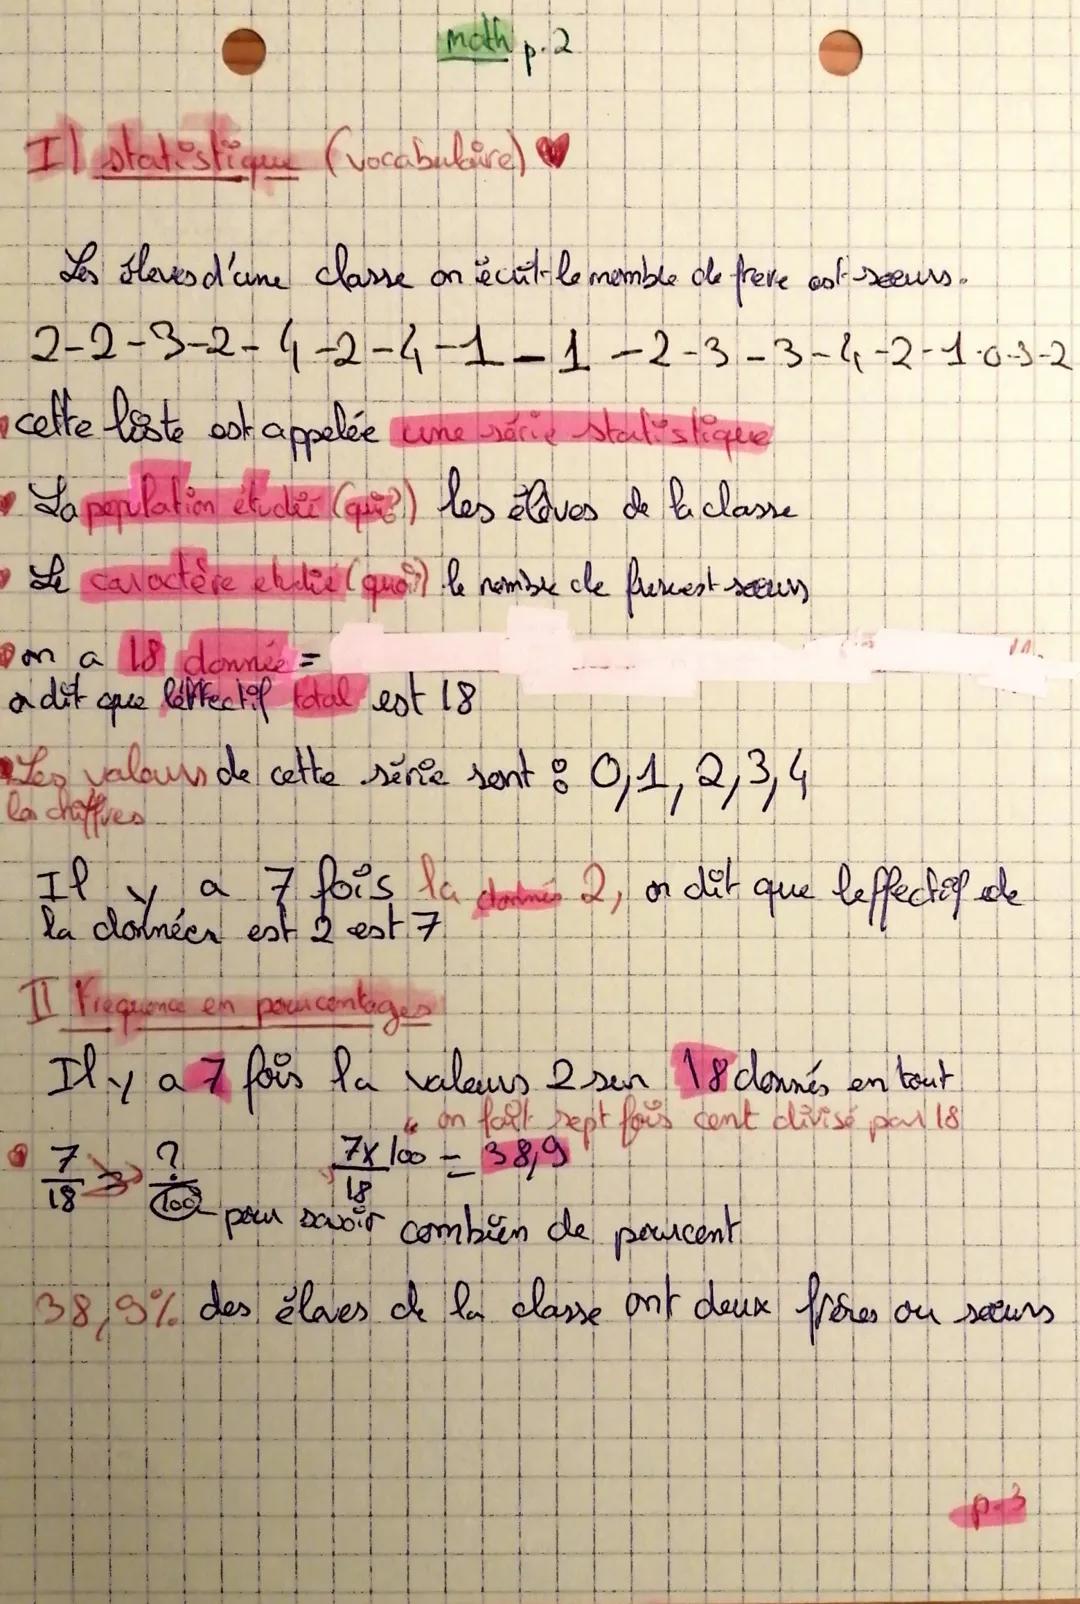 math p.2
I) statistique (vocabulaire)
Les éleves d'une classe on écrit le nombre de frere est soeurs.
2-2-3-2-4-2-4-1-1-2-3-3-4-2-1-0-3-2
cette liste est appelée une série statistique
La population étudié (qui?) les élèves de la classe
Le caractère etudié (quoi?) le nombre de freres est soeurs
on a 18 donnée =
on dit que l'éffectif total est 18
Les valeurs de cette série sont : 0,1,2,3,4
les chiffres
Il y a 7 fois la donnés 2, on dit que l'effectif de
la données est 2 est 7
II Frequence en pourcentages
Il y a 7 fois la valeurs 2 sur 18 donnés en tout
on fait sept fois cent divisé par 18
7/18 ?/100 7x100/18 = 38,9
pour savoir combien de pourcent
38,9% des élèves de la classe ont deux frères ou soeurs
p-3